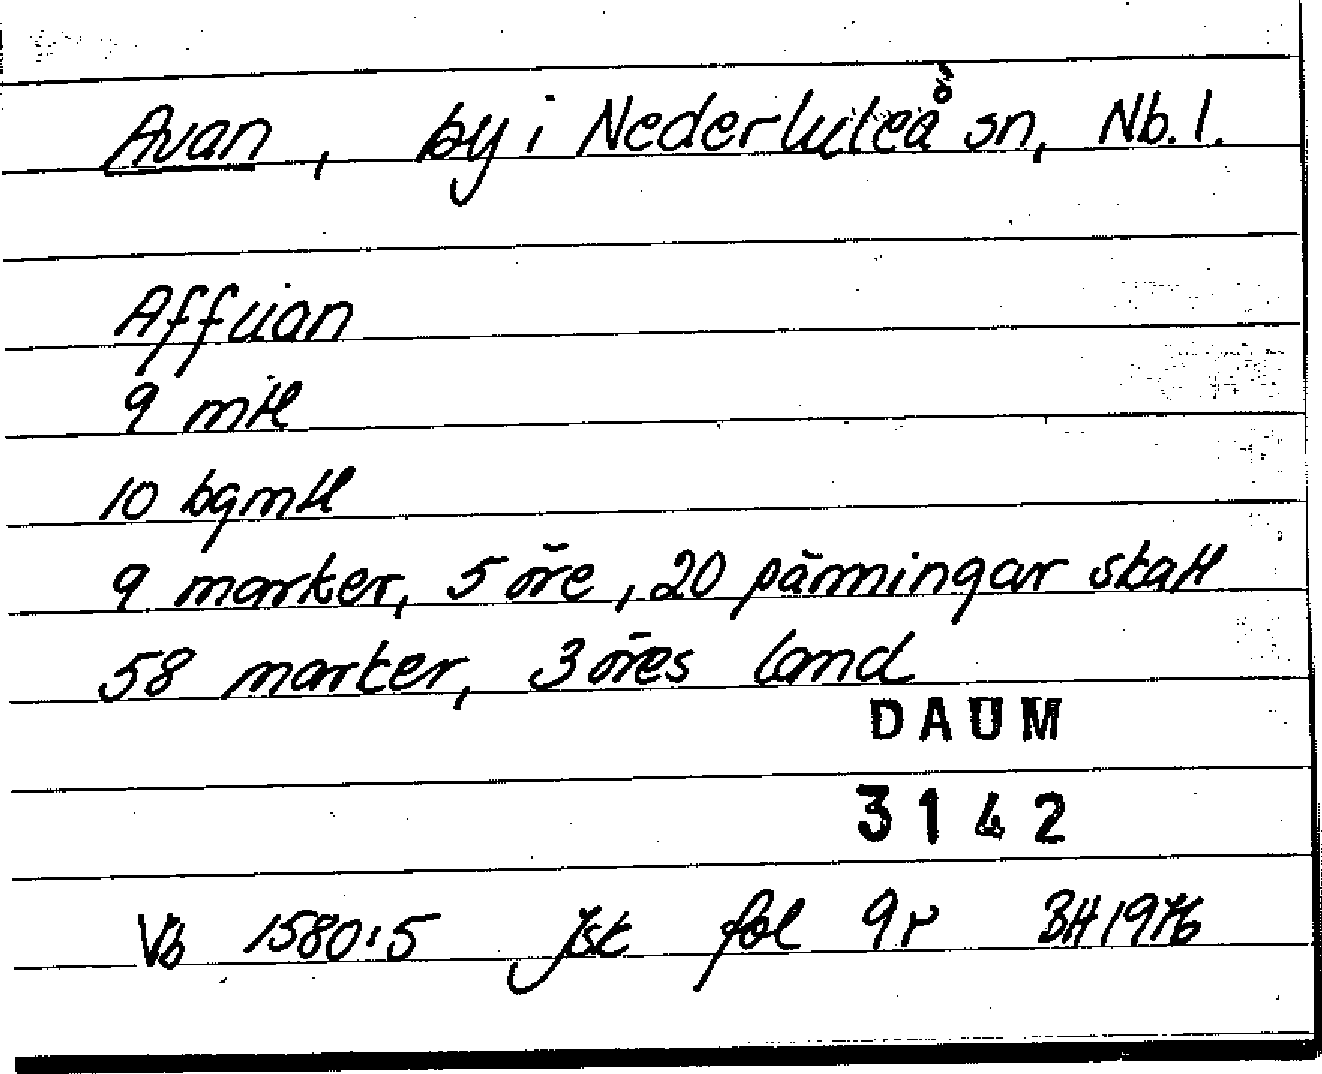 Avan, by i Nederluleå sn, Nb. l.
Affuan
9 mtl
10 bgmtl
9 marker, 5 öre, 20 pänningar skatt
58 marker, 3 öres land
DAUM
3142
Vb 1580:5 Jsk fol 9r BH 1976